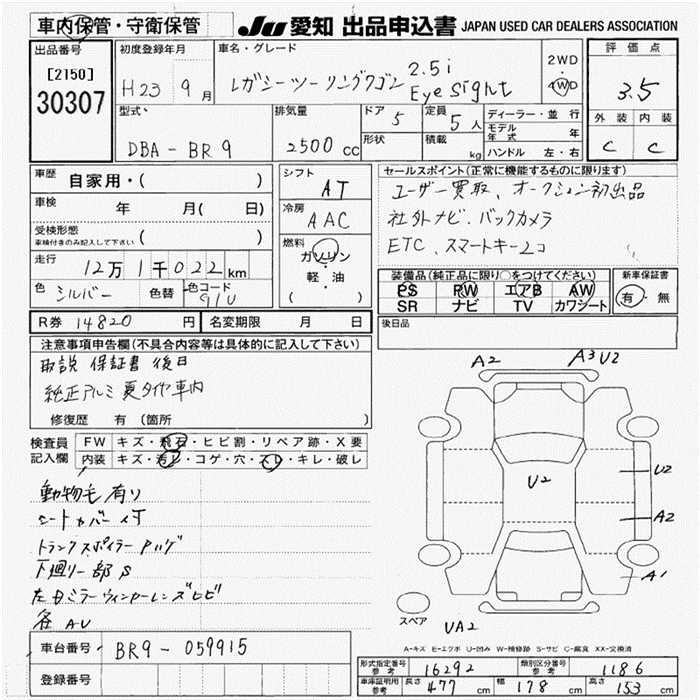 車内保管・守衛保管 JU 愛知 出品申込書 JAPAN USED CAR DEALERS ASSOCIATION
出品番号 初度登録年月 車名・グレード 評価点
[2150] H23 9月 レガシーツーリングワゴン 2.5i EyeSight 2WD・4WD 3.5
30307
型式 排気量 ドア 5 定員 5人 ディーラー・並行 外装 内装
DBA-BR9 2500cc 形状 積載 kg モデル年式 年 C C
ハンドル 左・右
車歴 自家用・( ) シフト AT セールスポイント(正常に機能するものに限ります)
車検 年 月( 日) 冷房 AAC ユーザー買取、オークション初出品
受検形態 ( ) 社外ナビ、バックカメラ
車検付きのみ記入して下さい 燃料 ガソリン ETC、スマートキー2コ
走行 12万1千022km 軽・油 装備品(純正品に限り○をつけてください) 新車保証書
色 シルバー 色替 色コード 91U ( ) PS PW エアB AW 有・無
SR ナビ TV カワシート
R券 14820円 名変期限 月 日 後日品
注意事項申告欄(不具合内容等は具体的に記入して下さい)
取説 保証書 後日
純正アルミ 夏タイヤ車内
修復歴 有 (箇所 )
A2 A3 U2
検査員 FW キズ・飛石・ヒビ割・リペア跡・X要
記入欄 内装 キズ・汚レ・コゲ・穴・スレ・キレ・破レ
U2 U2
動物毛有り
シートカバー付
A2
トランクスポイラー
下廻り一部S
A1
左ドミラーウィンカーレンズヒビ
各AU
スペア UA2
A-キズ E-エクボ U-凹み W-補修跡 S-サビ C-腐食 XX-交換済
車台番号 BR9-059915
型式指定番号 参考 16292 類別区分番号 参考 1186
登録番号
車庫証明用 参考 長さ 477cm 幅 178cm 高さ 153cm